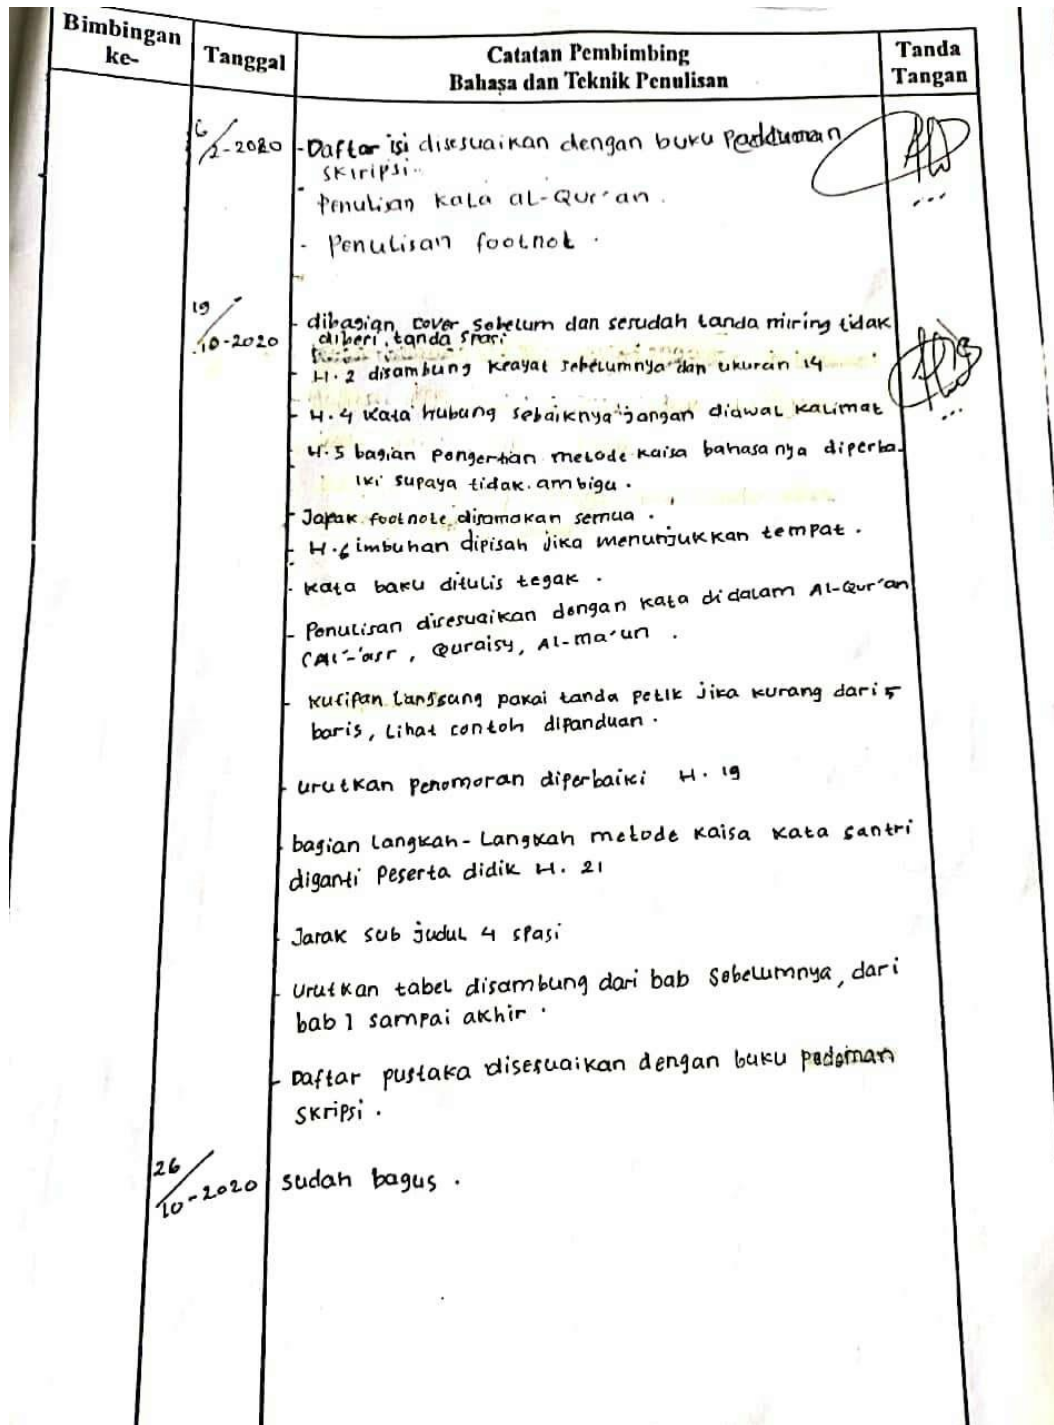 Bimbingan ke-
Tanggal
Catatan Pembimbing
Bahasa dan Teknik Penulisan
Tanda Tangan
6/2-2020
- Daftar isi disesuaikan dengan buku Pedduman
skiripsi..
- Penulisan kata al-Qur'an.
- Penulisan footnot.
19/10-2020
- dibagian cover sebelum dan sesudah tanda miring tidak
diberi tanda spasi
- H.2 disambung krayat sebelumnya dan ukuran 14
- H.4 kata hubung sebaiknya jangan diawal kalimat
H.5 bagian pengertian metode kaisa bahasanya diperba-
iki supaya tidak ambigu.
- Jarak footnote disamakan semua.
- H.6 imbuhan dipisah jika menunjukkan tempat.
- kata baku ditulis tegak.
- Penulisan disesuaikan dengan kata didalam Al-Qur'an
Quraisy, Al-ma'un.
- kutipan langsung pakai tanda petik jika kurang dari 5
baris, lihat contoh dipanduan.
- urutkan penomoran diperbaiki H. 19
bagian langkah-langkah metode kaisa kata santri
diganti peserta didik H. 21
- Jarak sub judul 4 spasi
- urutkan tabel disambung dari bab sebelumnya, dari
bab 1 sampai akhir.
- Daftar pustaka disesuaikan dengan buku pedoman
skripsi.
26/10-2020
sudah bagus.